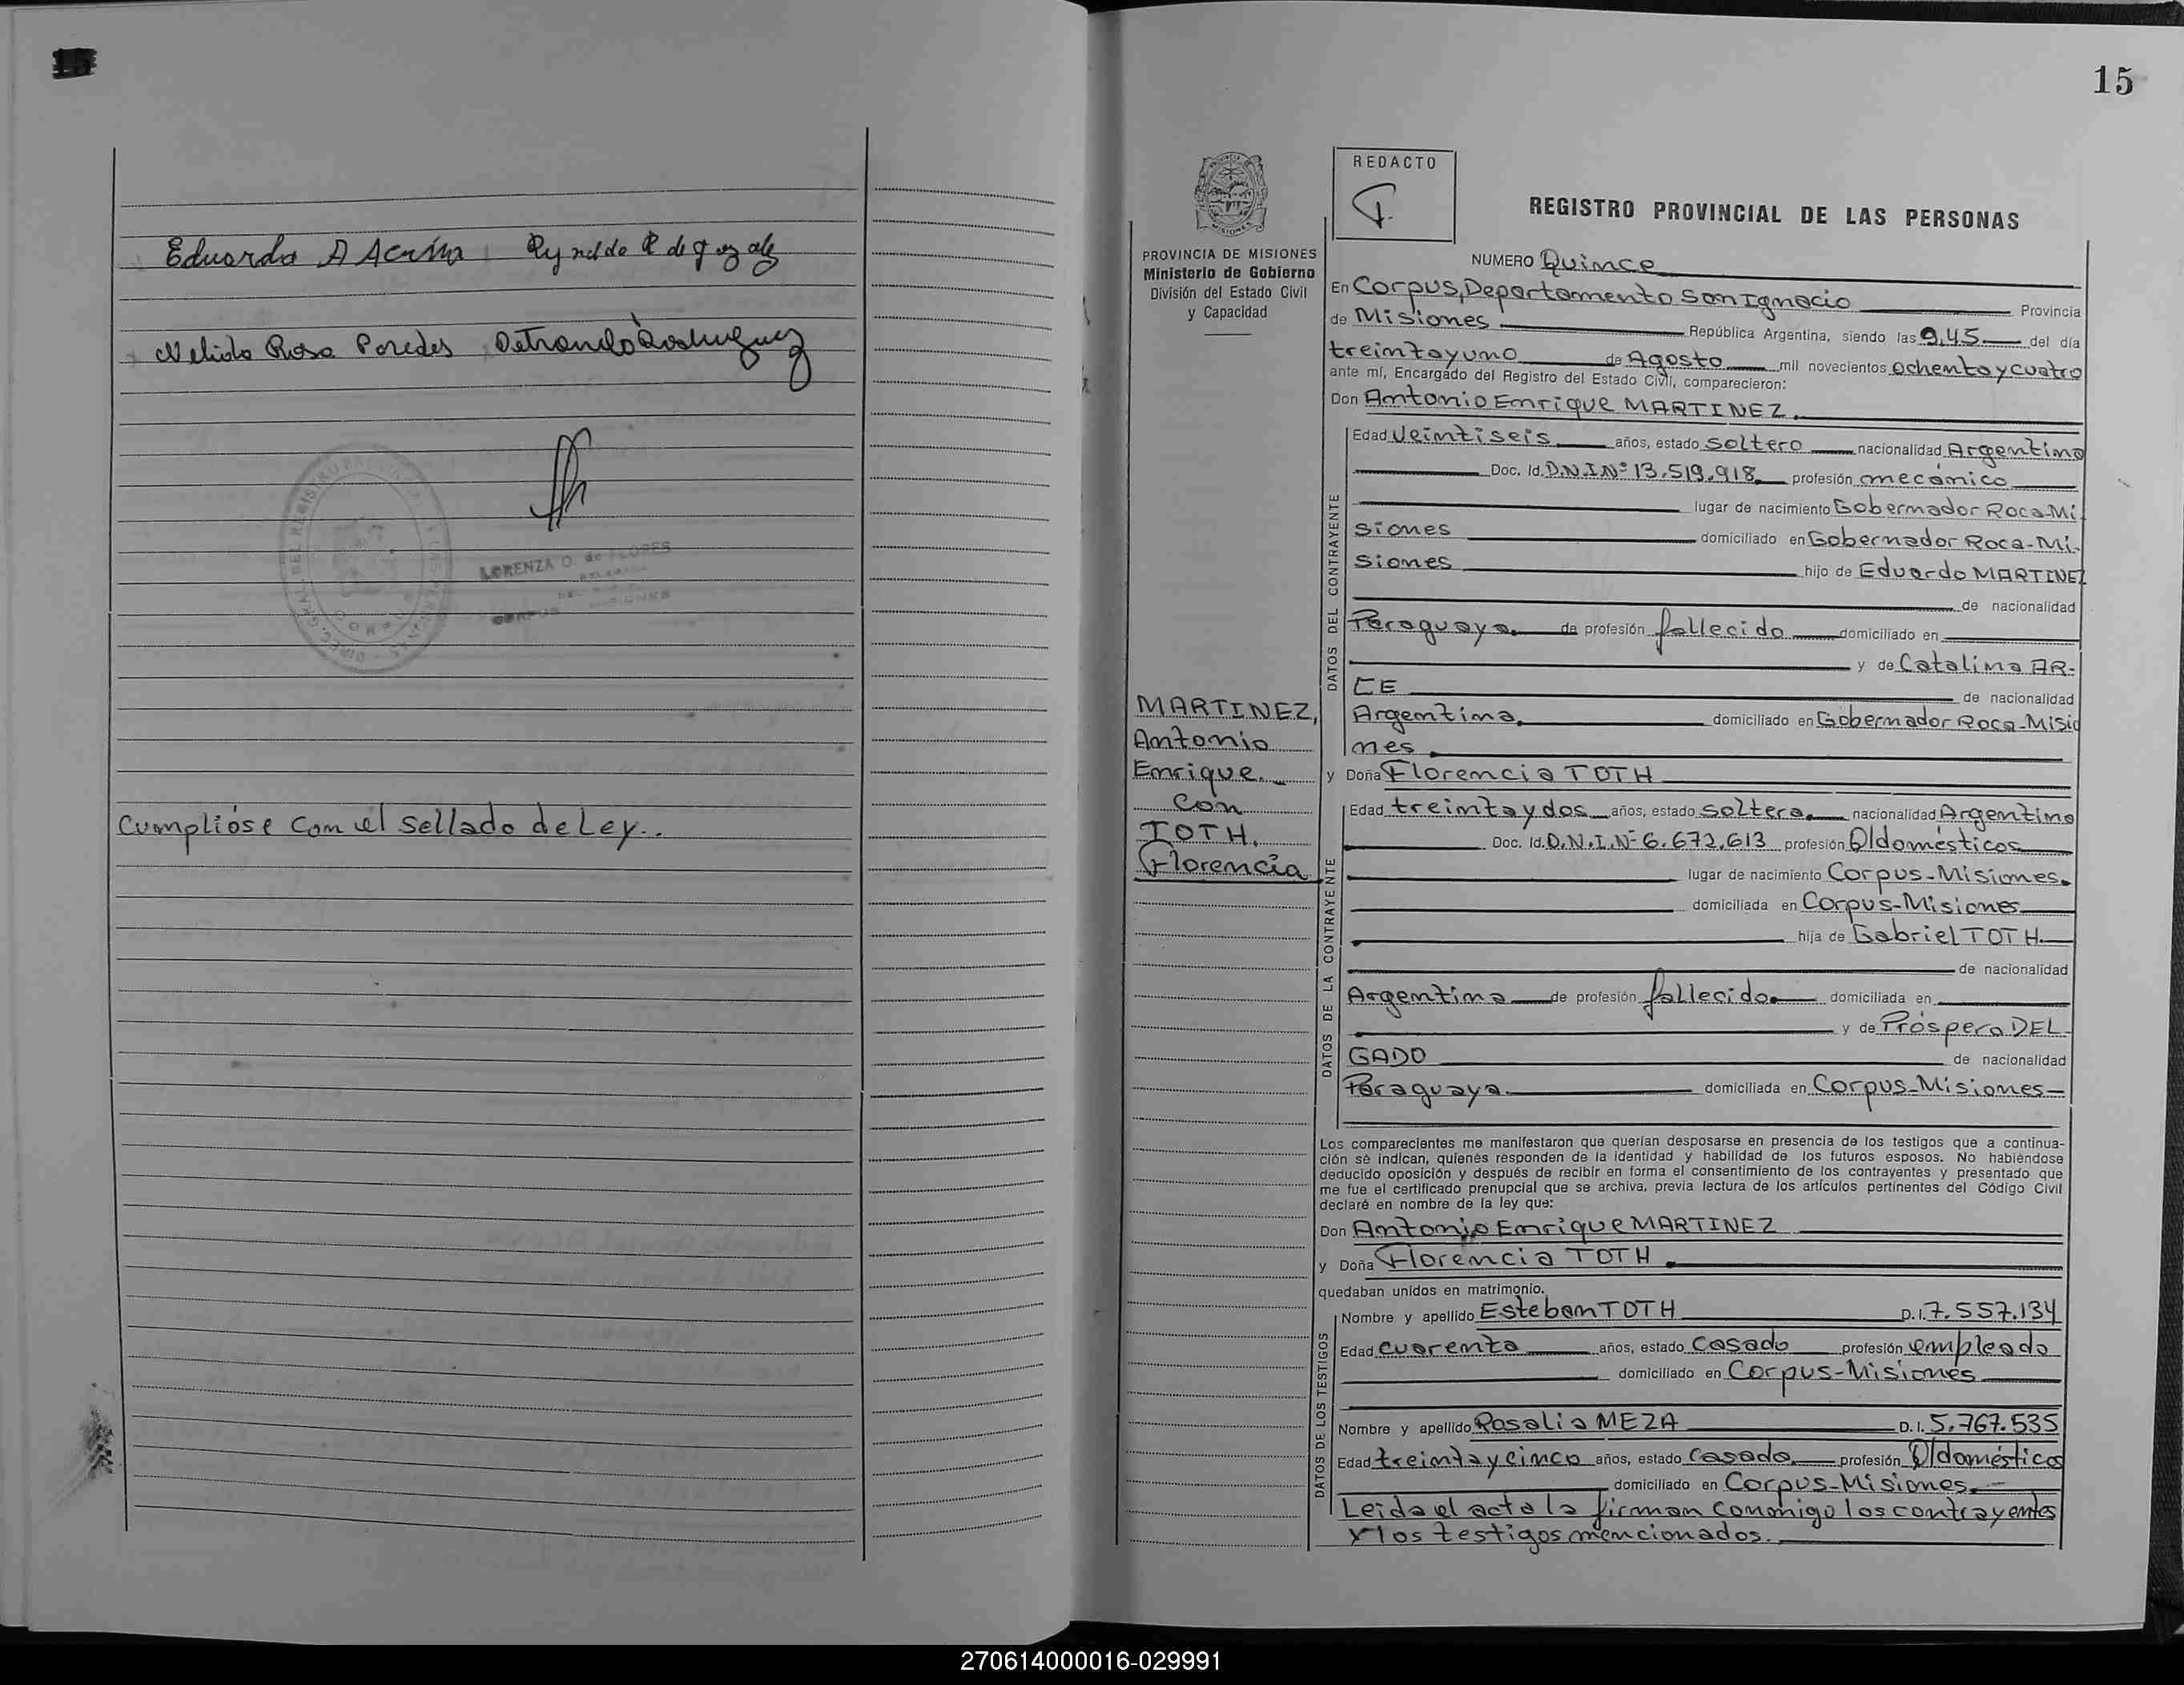 15
Eduardo A Acuña
Nelida Rosa Paredes
LORENZA O. de FLORES
CORPUS MISIONES
Cumplióse con el sellado de Ley..
15
REDACTO
REGISTRO PROVINCIAL DE LAS PERSONAS
PROVINCIA DE MISIONES
Ministerio de Gobierno
División del Estado Civil
y Capacidad
NUMERO Quince
En Corpus, Departamento San Ignacio Provincia
de Misiones República Argentina, siendo las 9,45 del día
treinta y uno de Agosto mil novecientos ochenta y cuatro
ante mí, Encargado del Registro del Estado Civil, comparecieron:
Don Antonio Enrique MARTINEZ.
DATOS DEL CONTRAYENTE
Edad Veintiseis años, estado soltero nacionalidad Argentino
Doc. Id. D.N.I.Nº 13.519.918 profesión mecánico
lugar de nacimiento Gobernador Roca-Mi
siones domiciliado en Gobernador Roca-Mi-
siones hijo de Eduardo MARTINEZ
de nacionalidad
Paraguaya de profesión fallecido domiciliado en
y de Catalina AR-
CE de nacionalidad
Argentina, domiciliado en Gobernador Roca-Misio
nes.
MARTINEZ,
Antonio
Enrique.
Con
TOTH,
Florencia
y Doña Florencia TOTH
DATOS DE LA CONTRAYENTE
Edad treinta y dos años, estado soltera nacionalidad Argentina
Doc. Id. D.N.I.Nº 6.672.613 profesión Q/domésticos
lugar de nacimiento Corpus-Misiones.
domiciliada en Corpus-Misiones
hija de Gabriel TOTH.
de nacionalidad
Argentina de profesión fallecido domiciliada en
y de Próspera DEL
GADO de nacionalidad
Paraguaya domiciliada en Corpus-Misiones
Los comparecientes me manifestaron que querían desposarse en presencia de los testigos que a continua-
ción se indican, quienes responden de la identidad y habilidad de los futuros esposos. No habiéndose
deducido oposición y después de recibir en forma el consentimiento de los contrayentes y presentado que
me fue el certificado prenupcial que se archiva, previa lectura de los artículos pertinentes del Código Civil
declaré en nombre de la ley que:
Don Antonio Enrique MARTINEZ
y Doña Florencia TOTH
quedaban unidos en matrimonio.
DATOS DE LOS TESTIGOS
Nombre y apellido Esteban TOTH D.I. 7.557.134
Edad cuarenta años, estado casado profesión empleado
domiciliado en Corpus-Misiones
Nombre y apellido Rosalia MEZA D.I. 5.767.535
Edad treinta y cinco años, estado casada profesión Q/domésticos
domiciliado en Corpus-Misiones.
Leida el acta la firman conmigo los contrayentes
y los testigos mencionados.
270614000016-029991